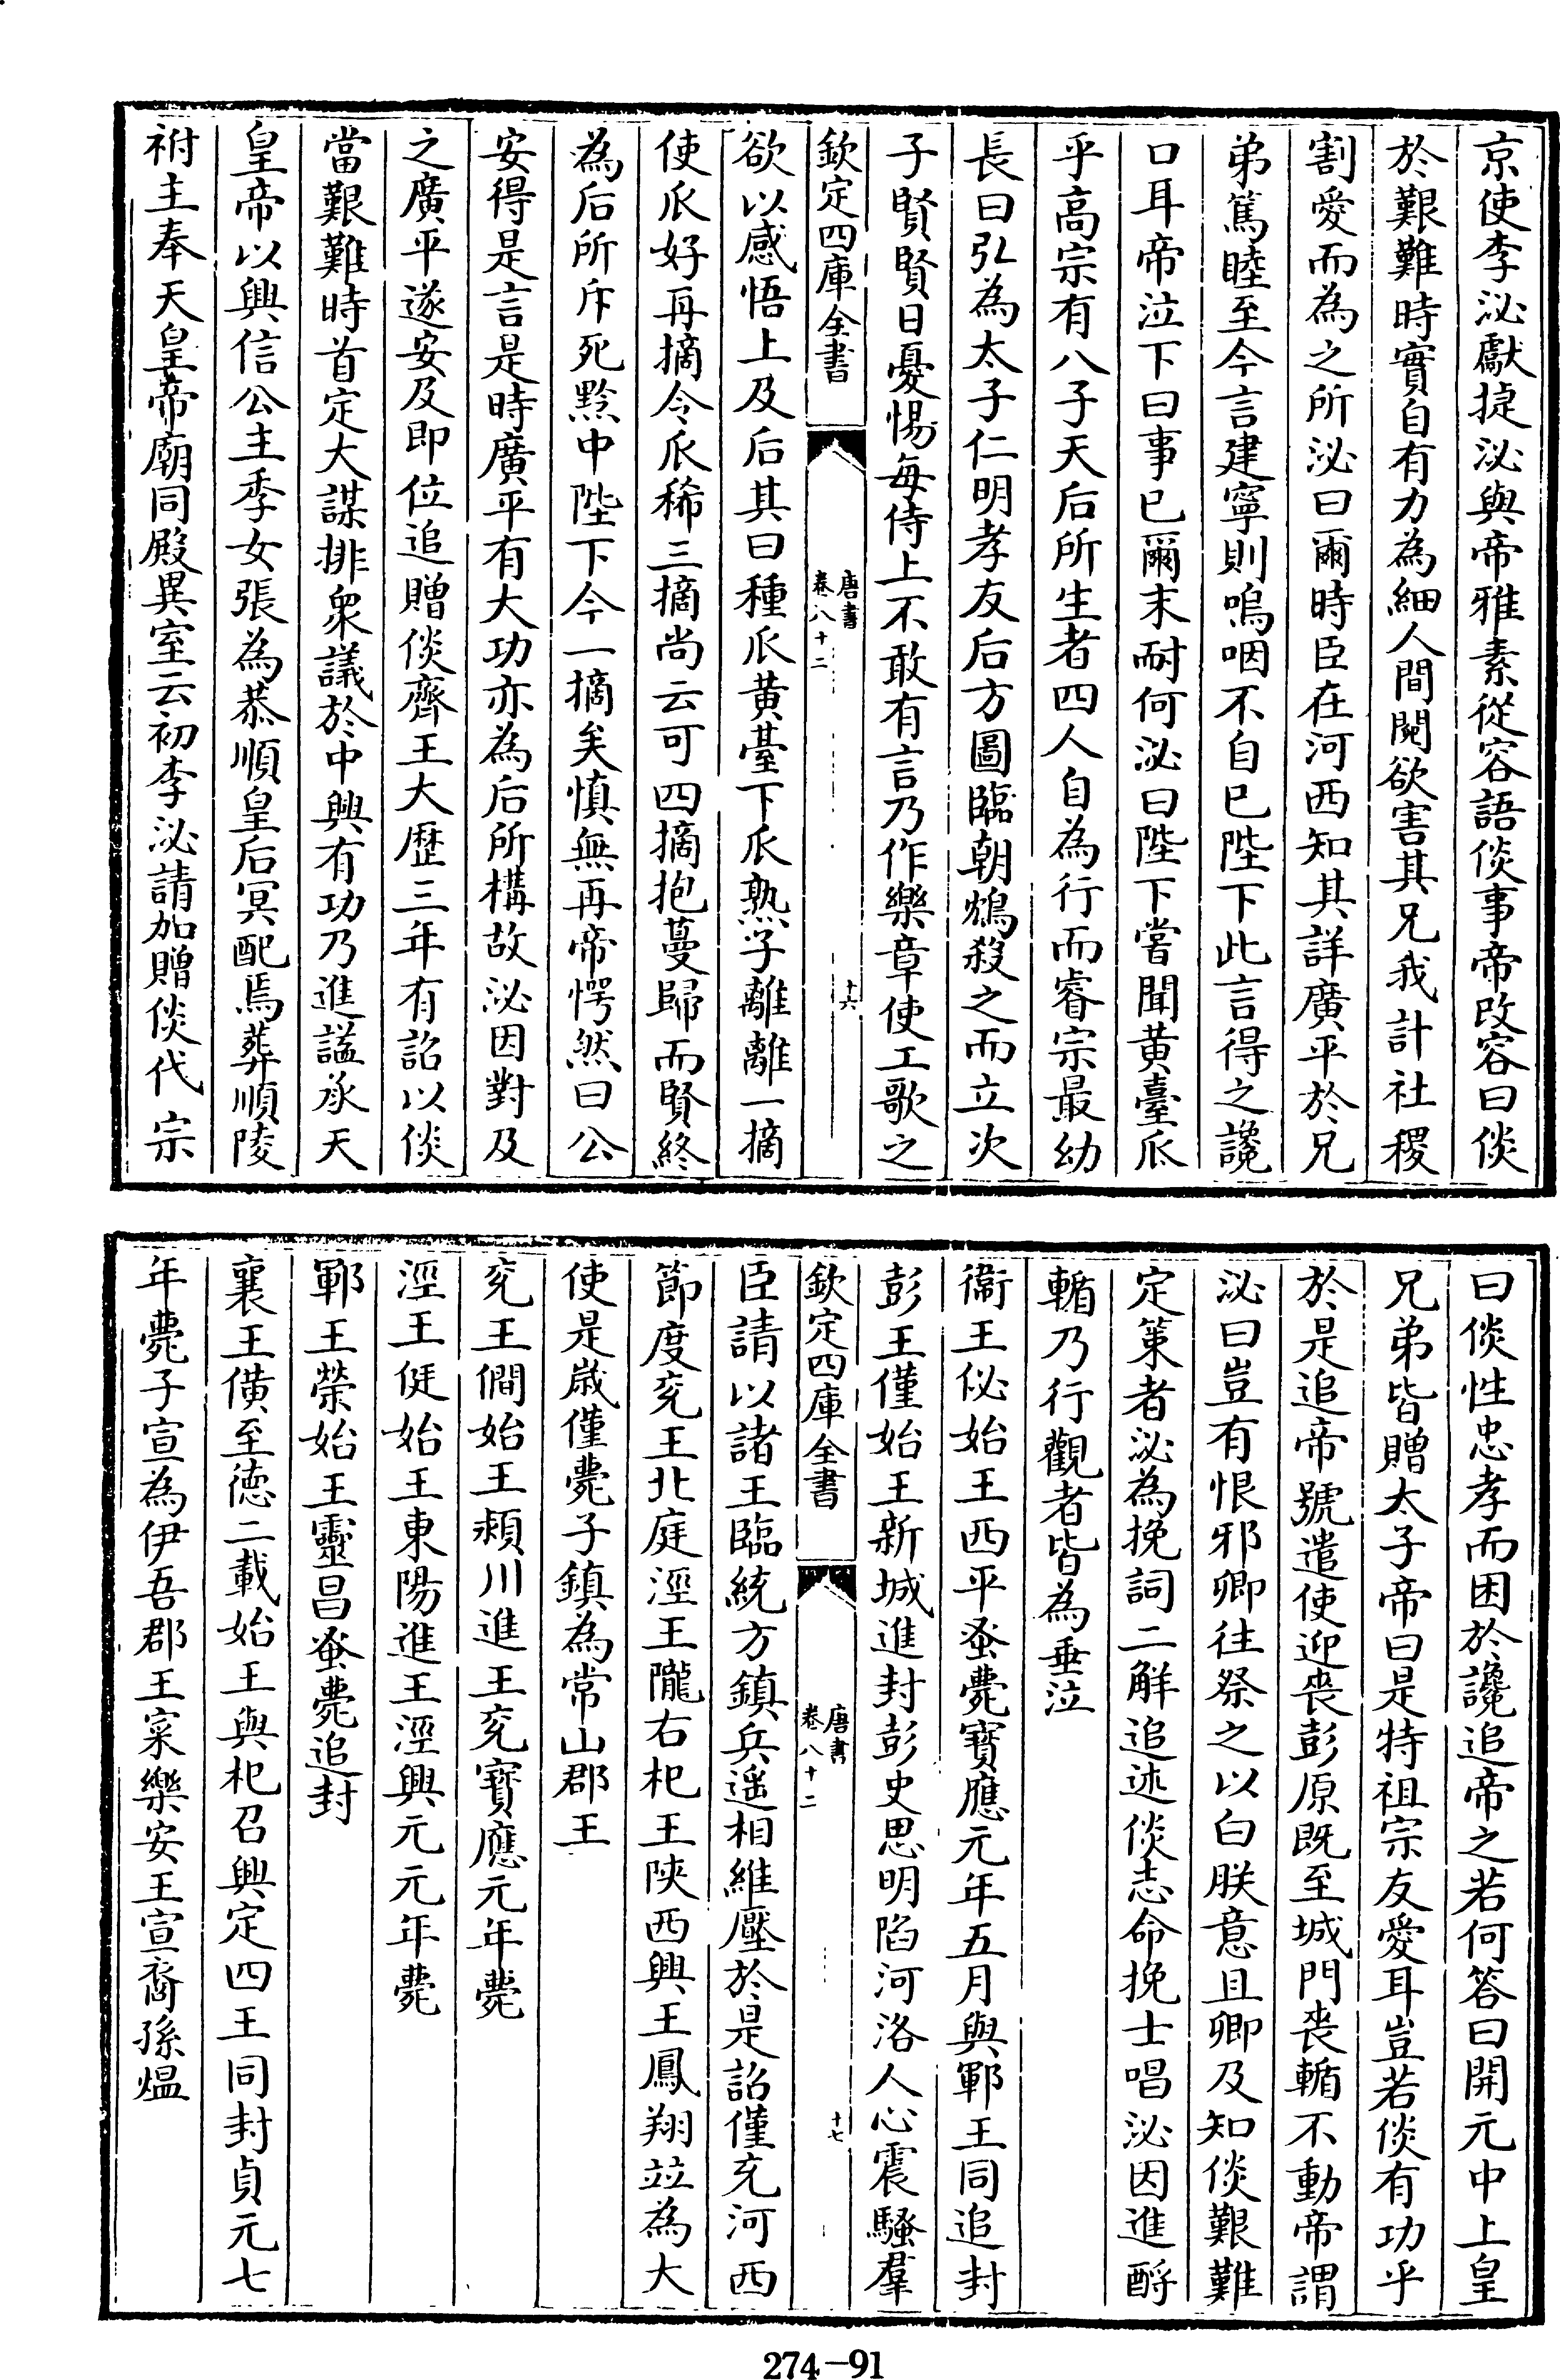 京使李泌獻捷泌與帝雅素從容語倓事帝改容曰倓
於艱難時實自有力為細人間鬩欲害其兄我計社稷
割愛而為之所泌曰爾時臣在河西知其詳廣平於兄
弟篤睦至今言建寧則嗚咽不自已陛下此言得之讒
口耳帝泣下曰事已爾末耐何泌曰陛下嘗聞黃臺瓜
乎高宗有八子天后所生者四人自為行而睿宗最幼
長曰弘為太子仁明孝友后方圖臨朝鴆殺之而立次
子賢賢日憂惕每侍上不敢有言乃作樂章使工歌之
欽定四庫全書
唐書
卷八十二
十六
欲以感悟上及后其曰種瓜黃臺下瓜熟子離離一摘
使瓜好再摘令瓜稀三摘尚云可四摘抱蔓歸而賢終
為后所斥死黔中陛下今一摘矣慎無再帝愕然曰公
安得是言是時廣平有大功亦為后所構故泌因對及
之廣平遂安及即位追贈倓齊王大歷三年有詔以倓
當艱難時首定大謀排衆議於中興有功乃進諡承天
皇帝以興信公主季女張為恭順皇后冥配焉葬順陵
祔主奉天皇帝廟同殿異室云初李泌請加贈倓代宗
曰倓性忠孝而困於讒追帝之若何答曰開元中上皇
兄弟皆贈太子帝曰是特祖宗友愛耳豈若倓有功乎
於是追帝號遣使迎喪彭原既至城門喪輴不動帝謂
泌曰豈有恨邪卿往祭之以白朕意且卿及知倓艱難
定策者泌為挽詞二解追述倓志命挽士唱泌因進酹
輴乃行觀者皆為垂泣
衞王佖始王西平蚤薨寶應元年五月與鄆王同追封
彭王僅始王新城進封彭史思明陷河洛人心震騷羣
欽定四庫全書
唐書
卷八十二
十七
臣請以諸王臨統方鎮兵遥相維壓於是詔僅充河西
節度兗王北庭涇王隴右杞王陜西興王鳳翔竝為大
使是歲僅薨子鎮為常山郡王
兗王僴始王潁川進王兗寶應元年薨
涇王侹始王東陽進王涇興元元年薨
鄆王榮始王靈昌蚤薨追封
襄王僙至德二載始王與杞召興定四王同封貞元七
年薨子宣為伊吾郡王寀樂安王宣裔孫熅
274-91